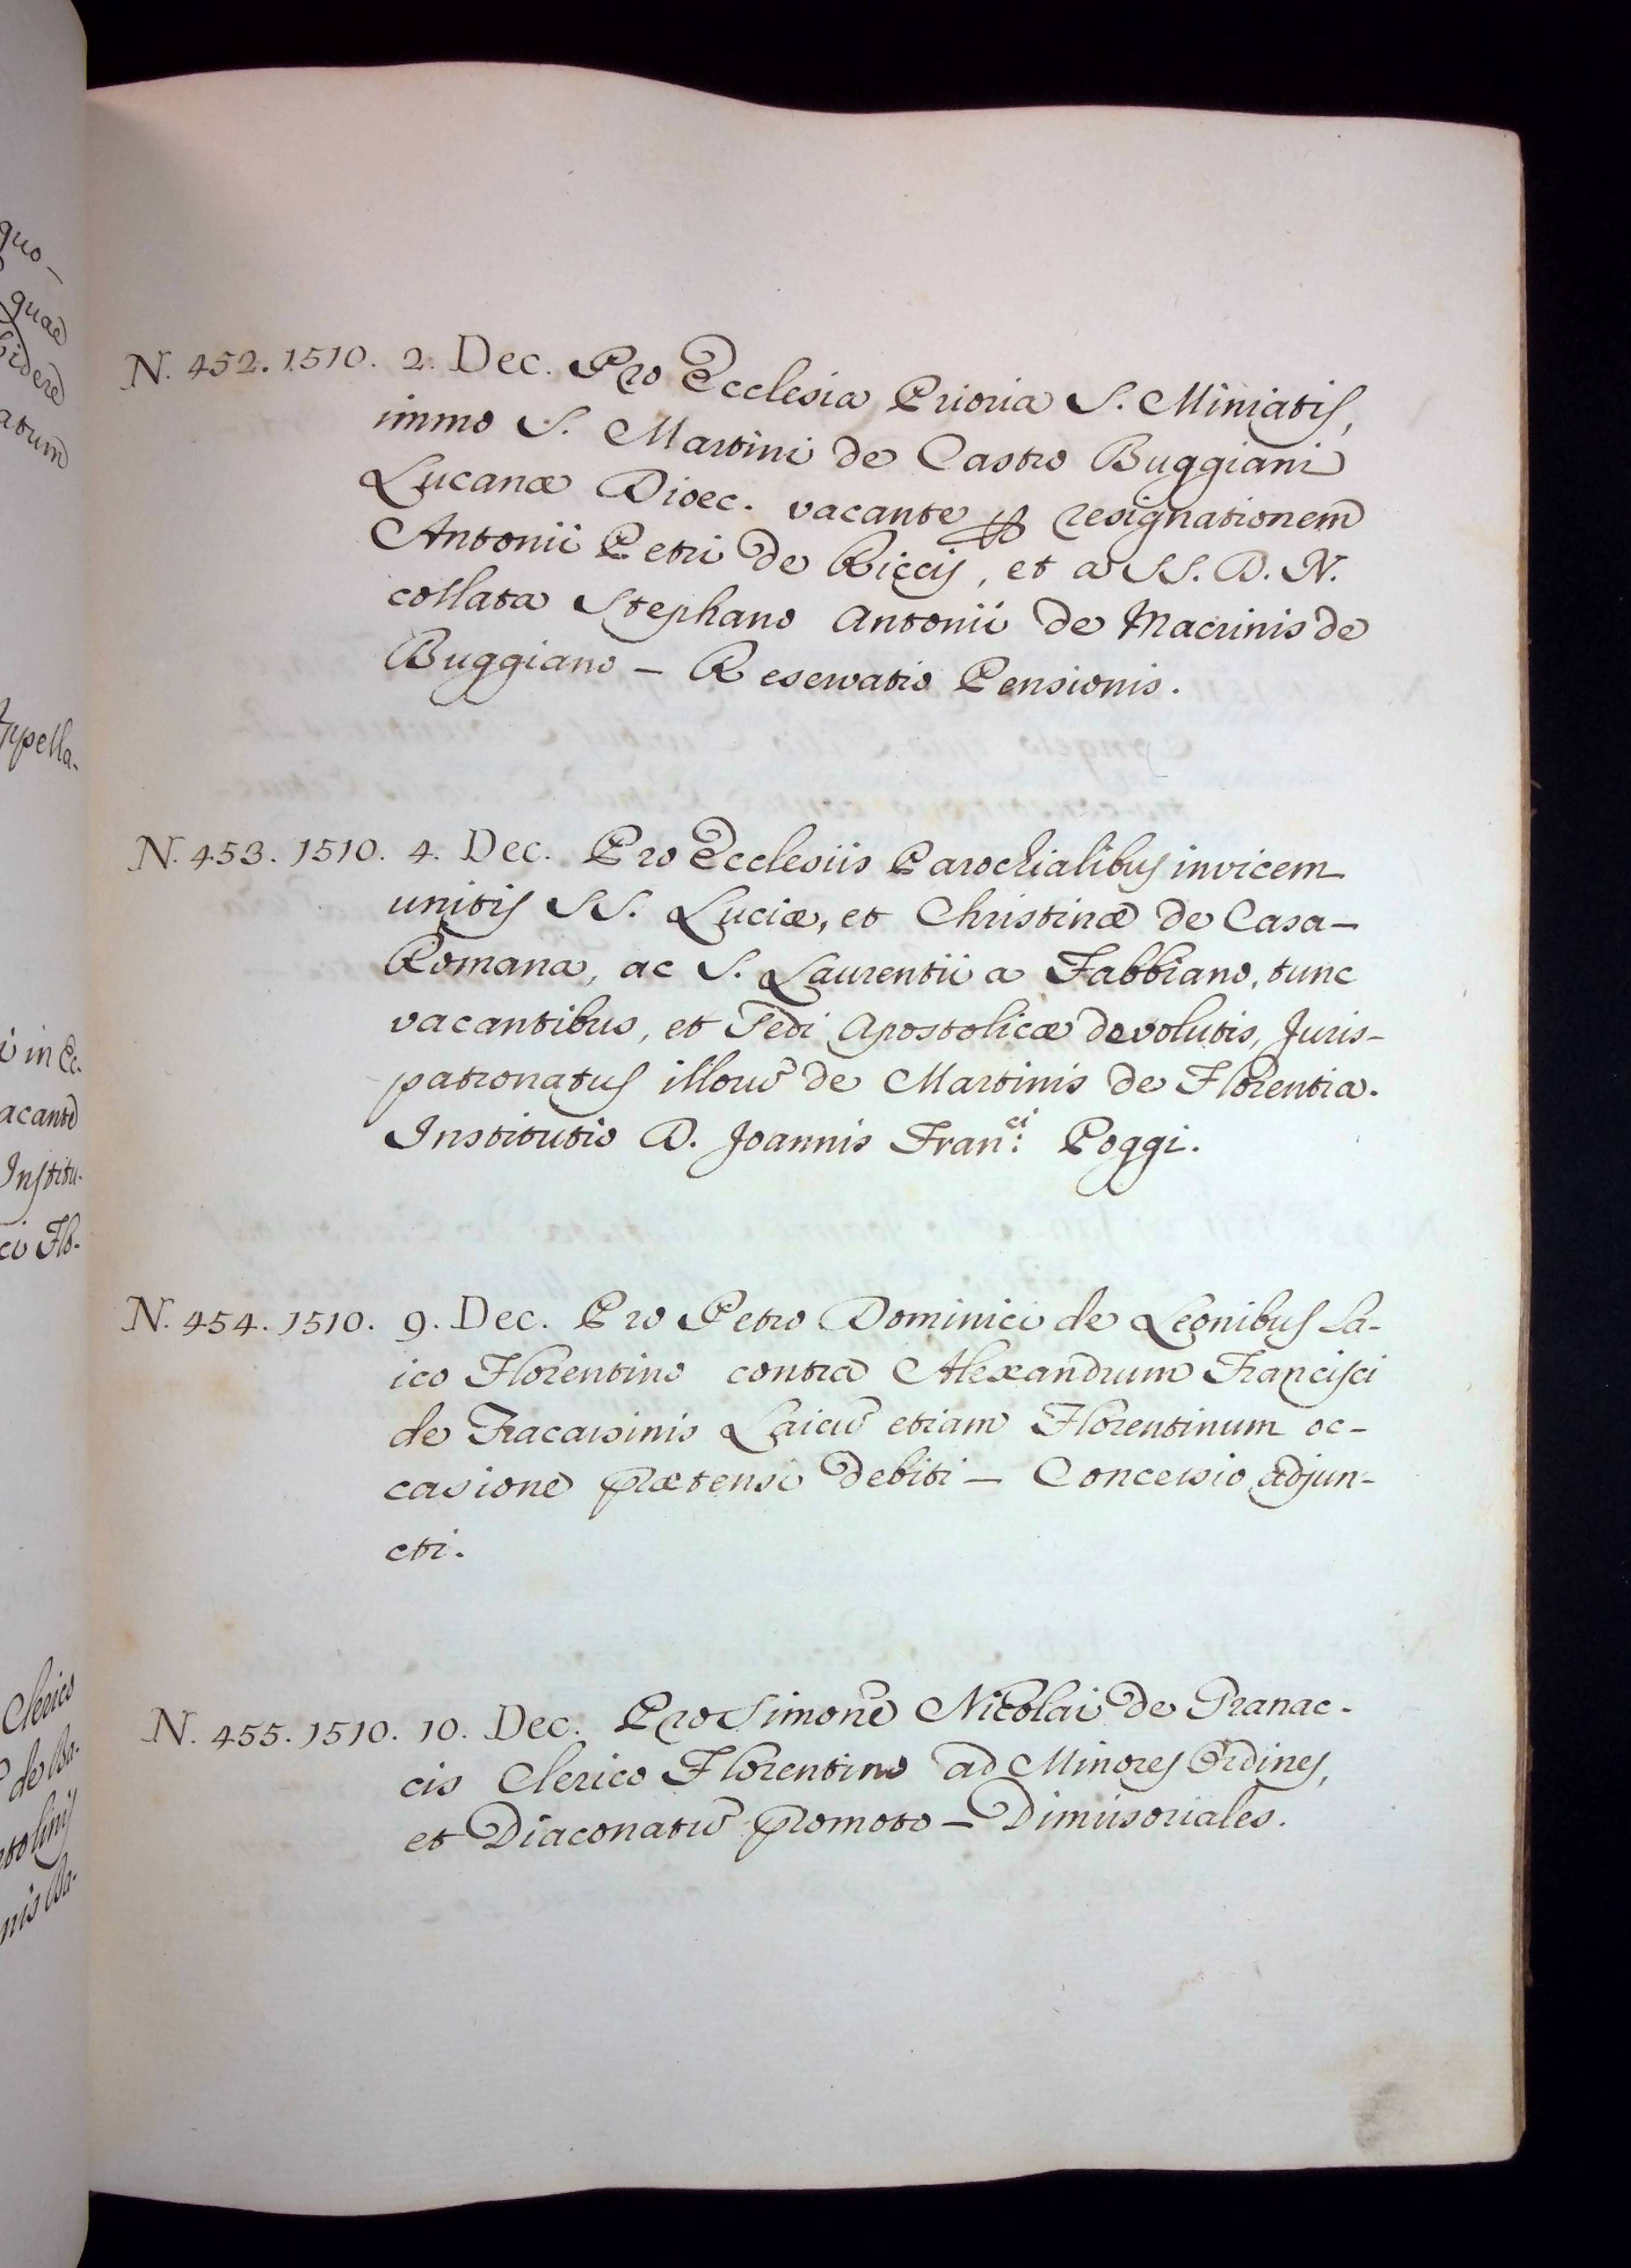 quo-
quæ
atum
Appella-
i in Ec-
acante
Institu-
ci Flo-
Clerico
de Ba-
nis Ba-
N. 452. 1510. 2. Dec. Pro Ecclesia Prioria S. Miniatis,
immo S. Martini de Castro Buggiani
Lucanæ Dioec. vacante ꝑ resignationem
Antonii Petri de Riccijs, et a SS. D. N.
collata Stephano Antonii de Macrinis de
Buggiano - Reservatio Pensionis.
N. 453. 1510. 4. Dec. Pro Ecclesiis Parochialibus invicem
unitis SS. Luciæ, et Christinæ de Casa-
Romana, ac S. Laurentii a Fabbiano, tunc
vacantibus, et Sedi Apostolicæ devolutis, Juris-
patronatus illorū de Martinis de Florentia.
Institutio D. Joannis Fran:ci Poggi.
N. 454. 1510. 9. Dec. Pro Petro Dominici de Leonibus La-
ico Florentino contra Alexandrum Francisci
de Fracassinis Laicū etiam Florentinum oc-
casione prætensi debiti - Concessio adjun-
cti.
N. 455. 1510. 10. Dec. Pro Simone Nicolai de Granac-
cis Clerico Florentino ad Minores Ordines,
et Diaconatū promoto - Dimissoriales.